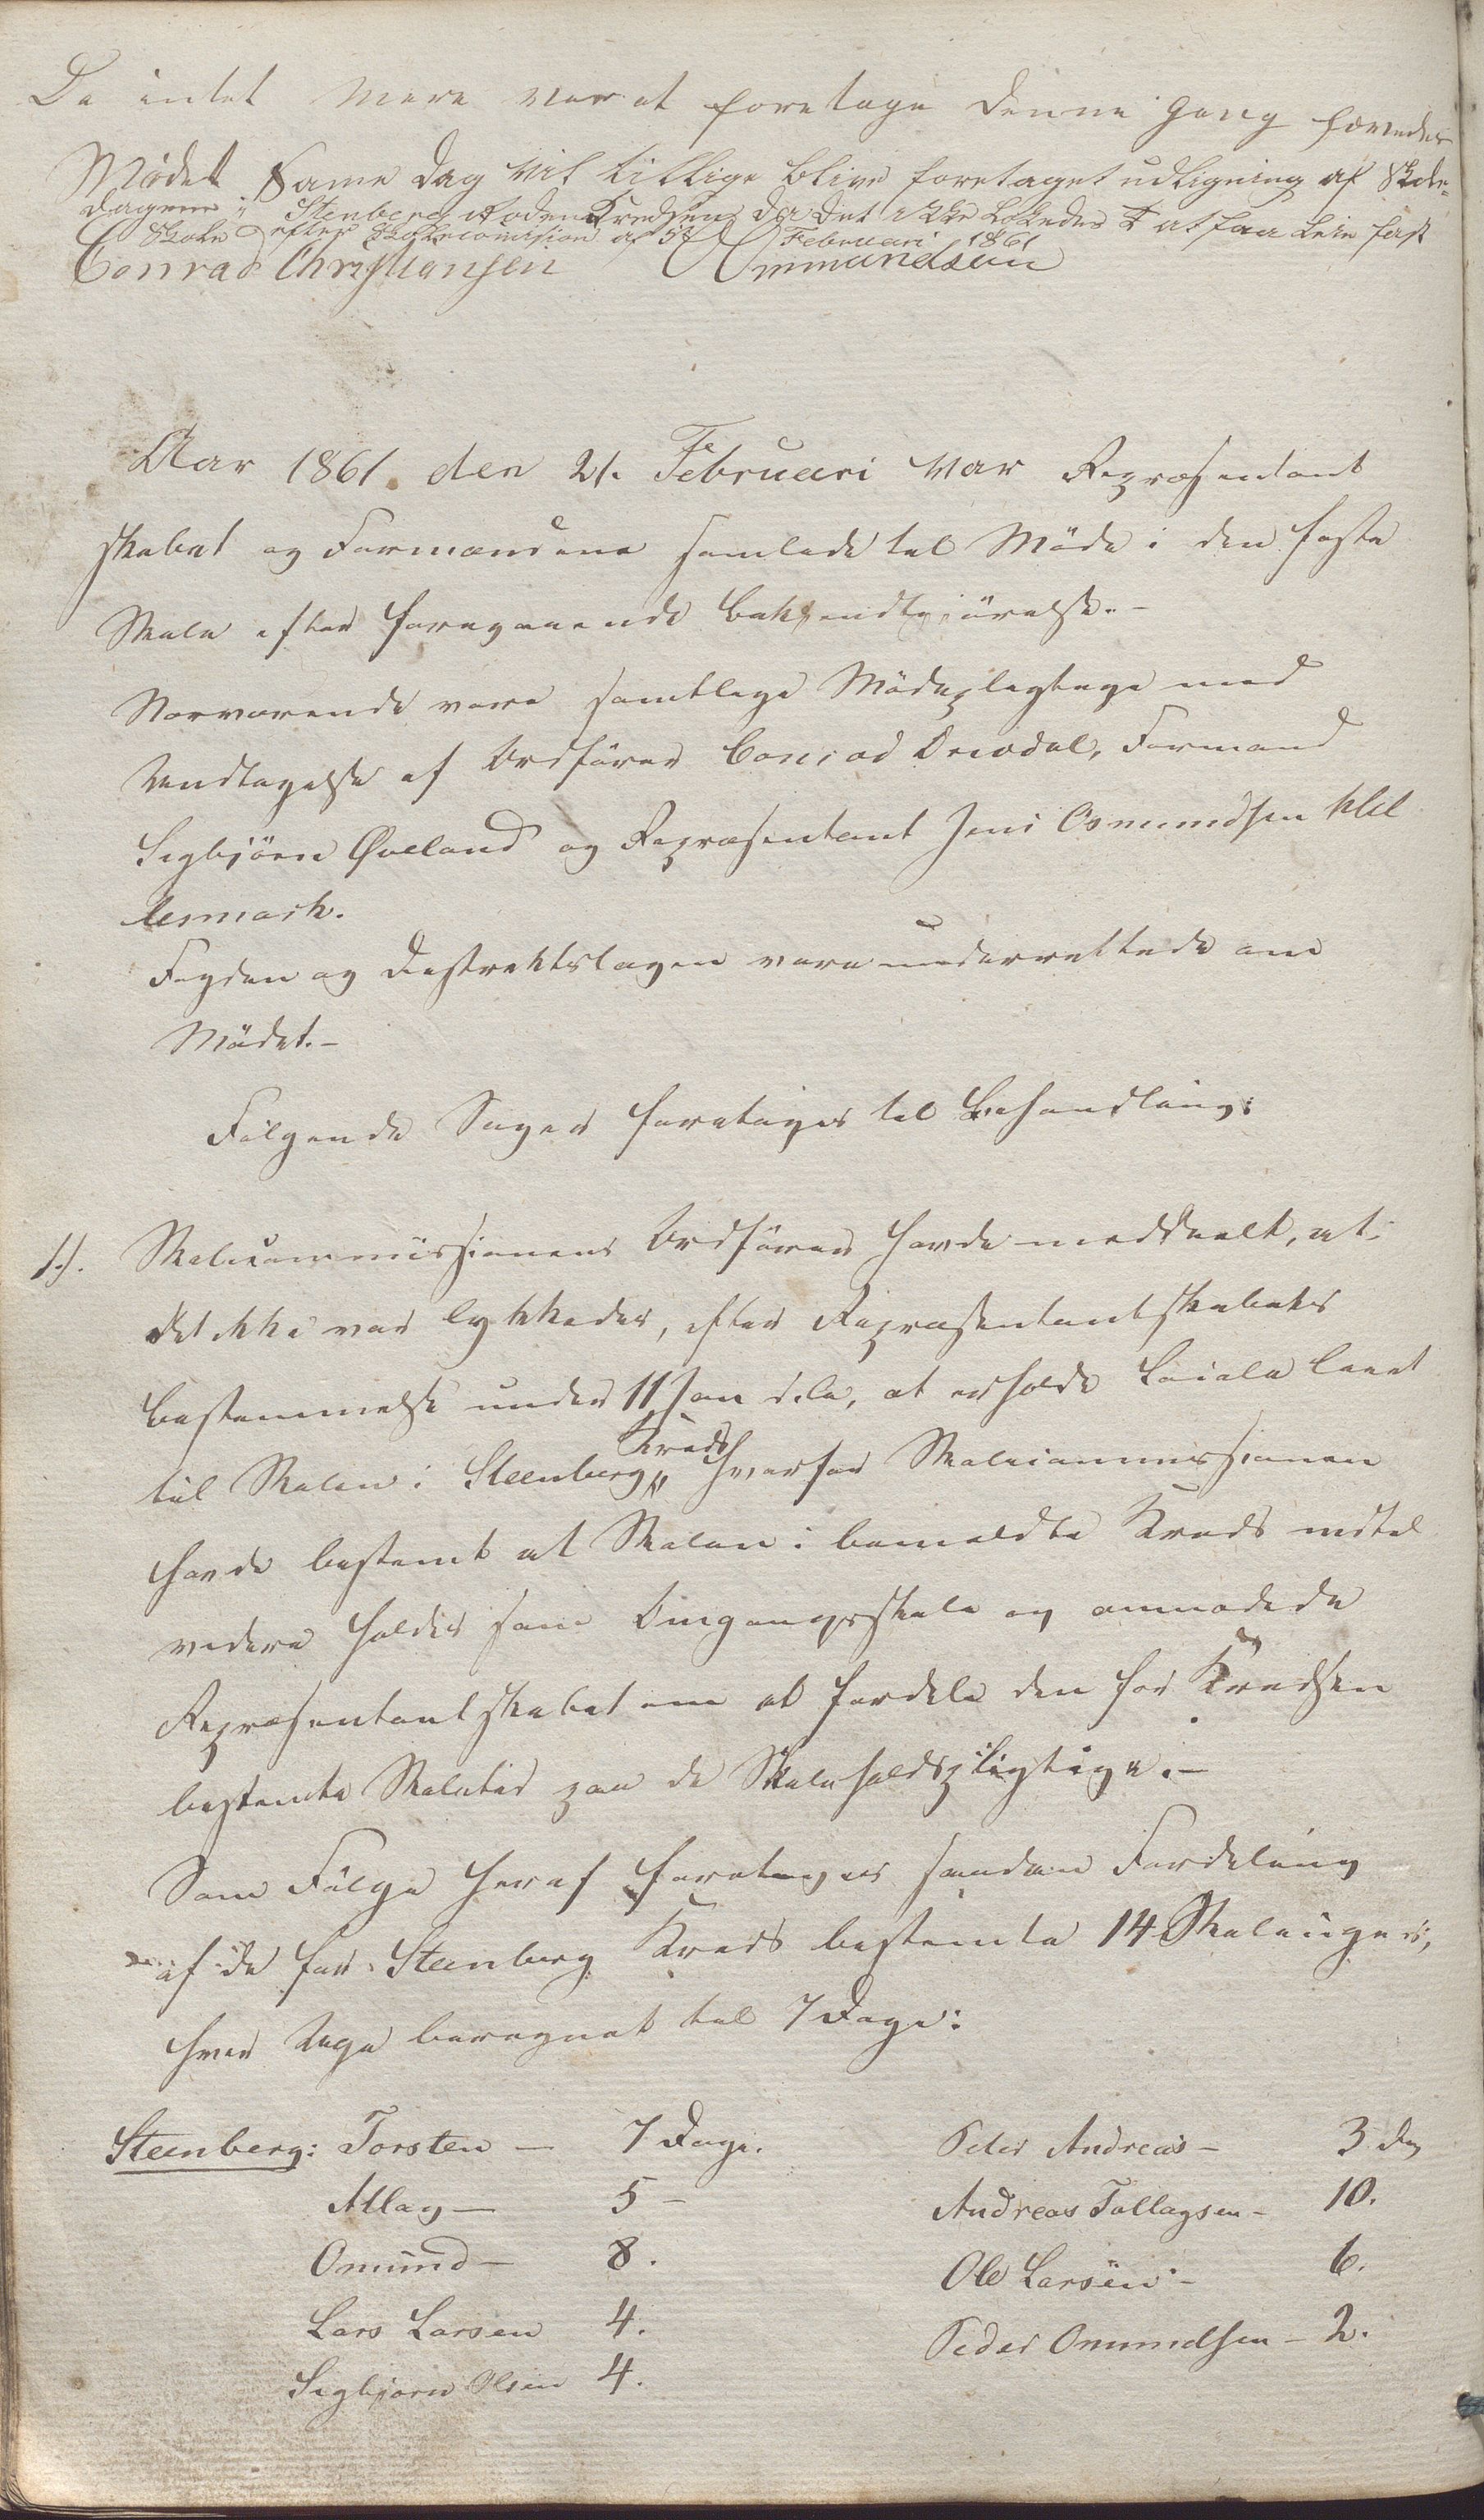 Da intet mere var at foretage denne gang hævedes
Mødet Same Dag vil tillige blive foretaget udligning af Skole-
dagene i Stenberg Roden Kredsen da det ikke lokedes at faa leie fast
Skole efter Skolecomision af 5te Februari 1861
Conrad Christiansen Ommundsen
Aar 1861 den 21. Februari var Repræsentant
skabet og Formændene samlede til Möde i den faste
Skole efter foregaaende bekjendtgjörelse.-
Nærværende vare samtlige Mödepligtige med
Undtagelse af Ordförer Conrad Drivdal, Formand
Sigbjörn Øvland og Repræsentant Jens Osmundsen
lesmark.
Fogden og Distriktslægen vare underrettede om
Mödet.-
Fölgende Sager foretages til Behandling:
1.). Skolecommissionens Ordförer havde meddeelt, at
det ikke var lykkedes, efter Repræsentantskabets
bestemmelse under 11 Jan d.a., at erholde Locale leiet
til Skolen i Steenberg Kreds hvorfor Skolecommissionen
havde bestemt at Skolen i bemeldte Kreds indtil
videre holdes som Omgangsskole og anmodede
Repræsentantskabet om at fordele den for Kredsen
bestemte Skoletid paa de Skoleholdspligtige.-
Som Fölge heraf foretages saadan Fordeling
af de for Steenberg Kreds bestemte 14 Skoleuger,
hver Uge beregnet til 7 Dage:
Steenberg: Torsten - 7 Dage. Peder Andreas - 3 Dag
Atlag - 5 - Andreas Tallagsen - 10.
Omund - 8. Ole Larsen - 6.
Lars Larsen 4. Peder Omundsen - 2.
Sigbjörn Olsen 4.